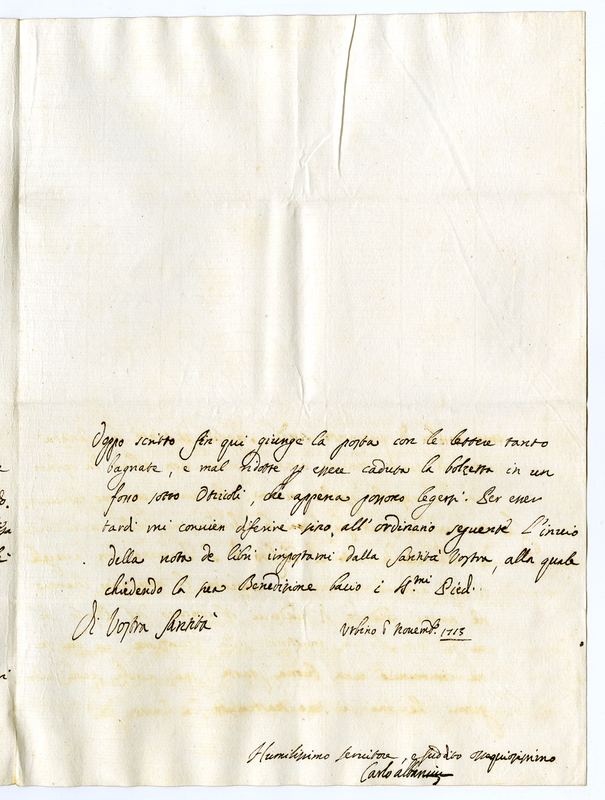 Doppo scritto fin qui giunge la posta con le lettere tanto
bagnate, e mal ridotte p essere caduta la bolzetta in un
fosso sotto Otricoli, che appena possono legersi. Per esser
tardi mi convien diferire sino all' ordinario seguente l'invio
della nota de libri impostami dalla Santità Vostra, alla quale
chiedendo la sua Benedizione bacio i SS.mi Piedi.
Di Vostra Santità
Urbino Novemb. 1713
Humilissimo servitore, e suddito ossequiosissimo
Carlo Albani